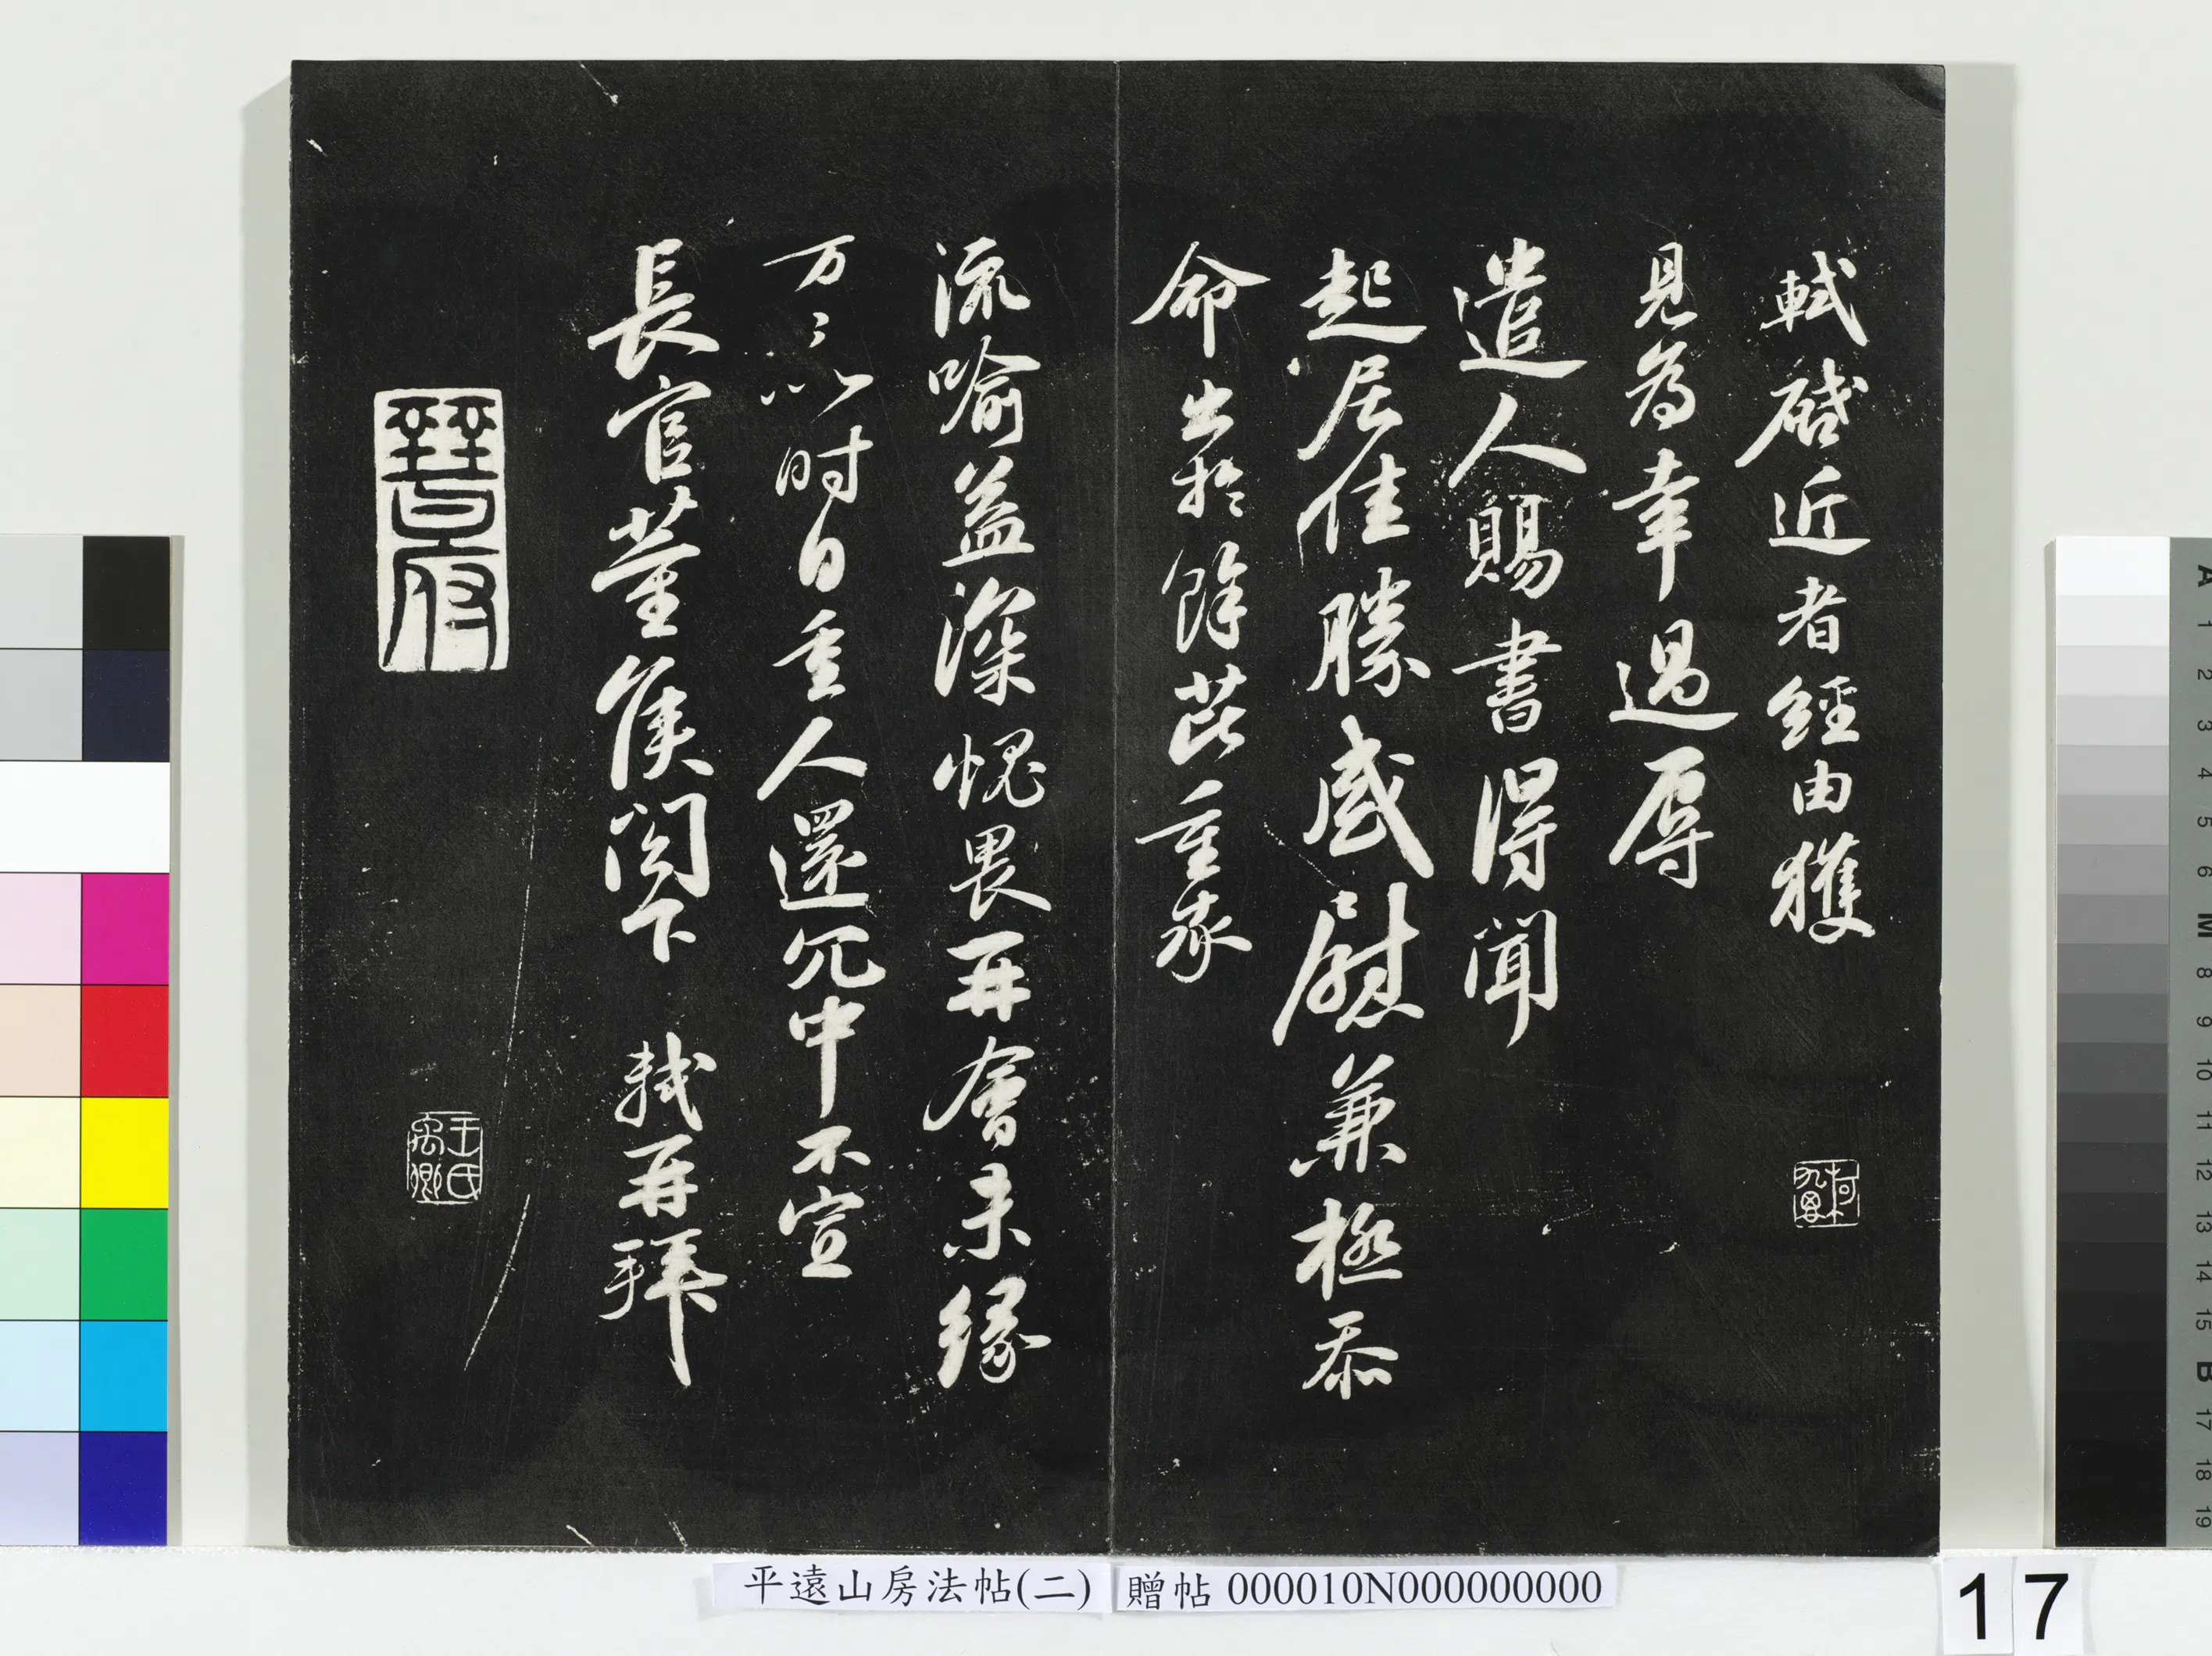 軾啓近者經由獲
見為幸過辱
遣人賜書得聞
起居佳勝感慰兼極忝
命出於餘芘重承
流喻益深愧畏再會未緣
万〻以時自重人還冗中不宣
長官董侯閣下 軾再拜
晉府
王氏禹卿
柯九思
平遠山房法帖(二) 贈帖 000010N000000000
17
A 1 2 3 4 5 6 M 8 9 10 11 12 13 14 15 B 17 18 19